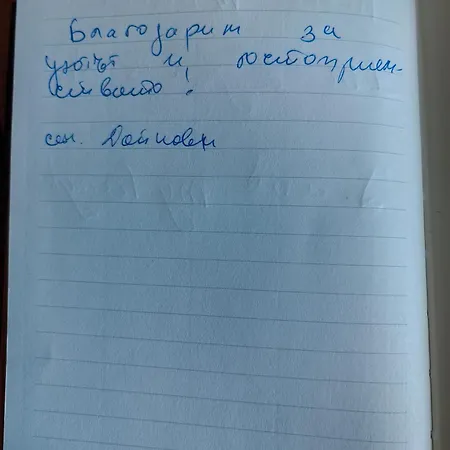 Благодарим за
уютът и гостоприем-
ството!
сем. Дойнови